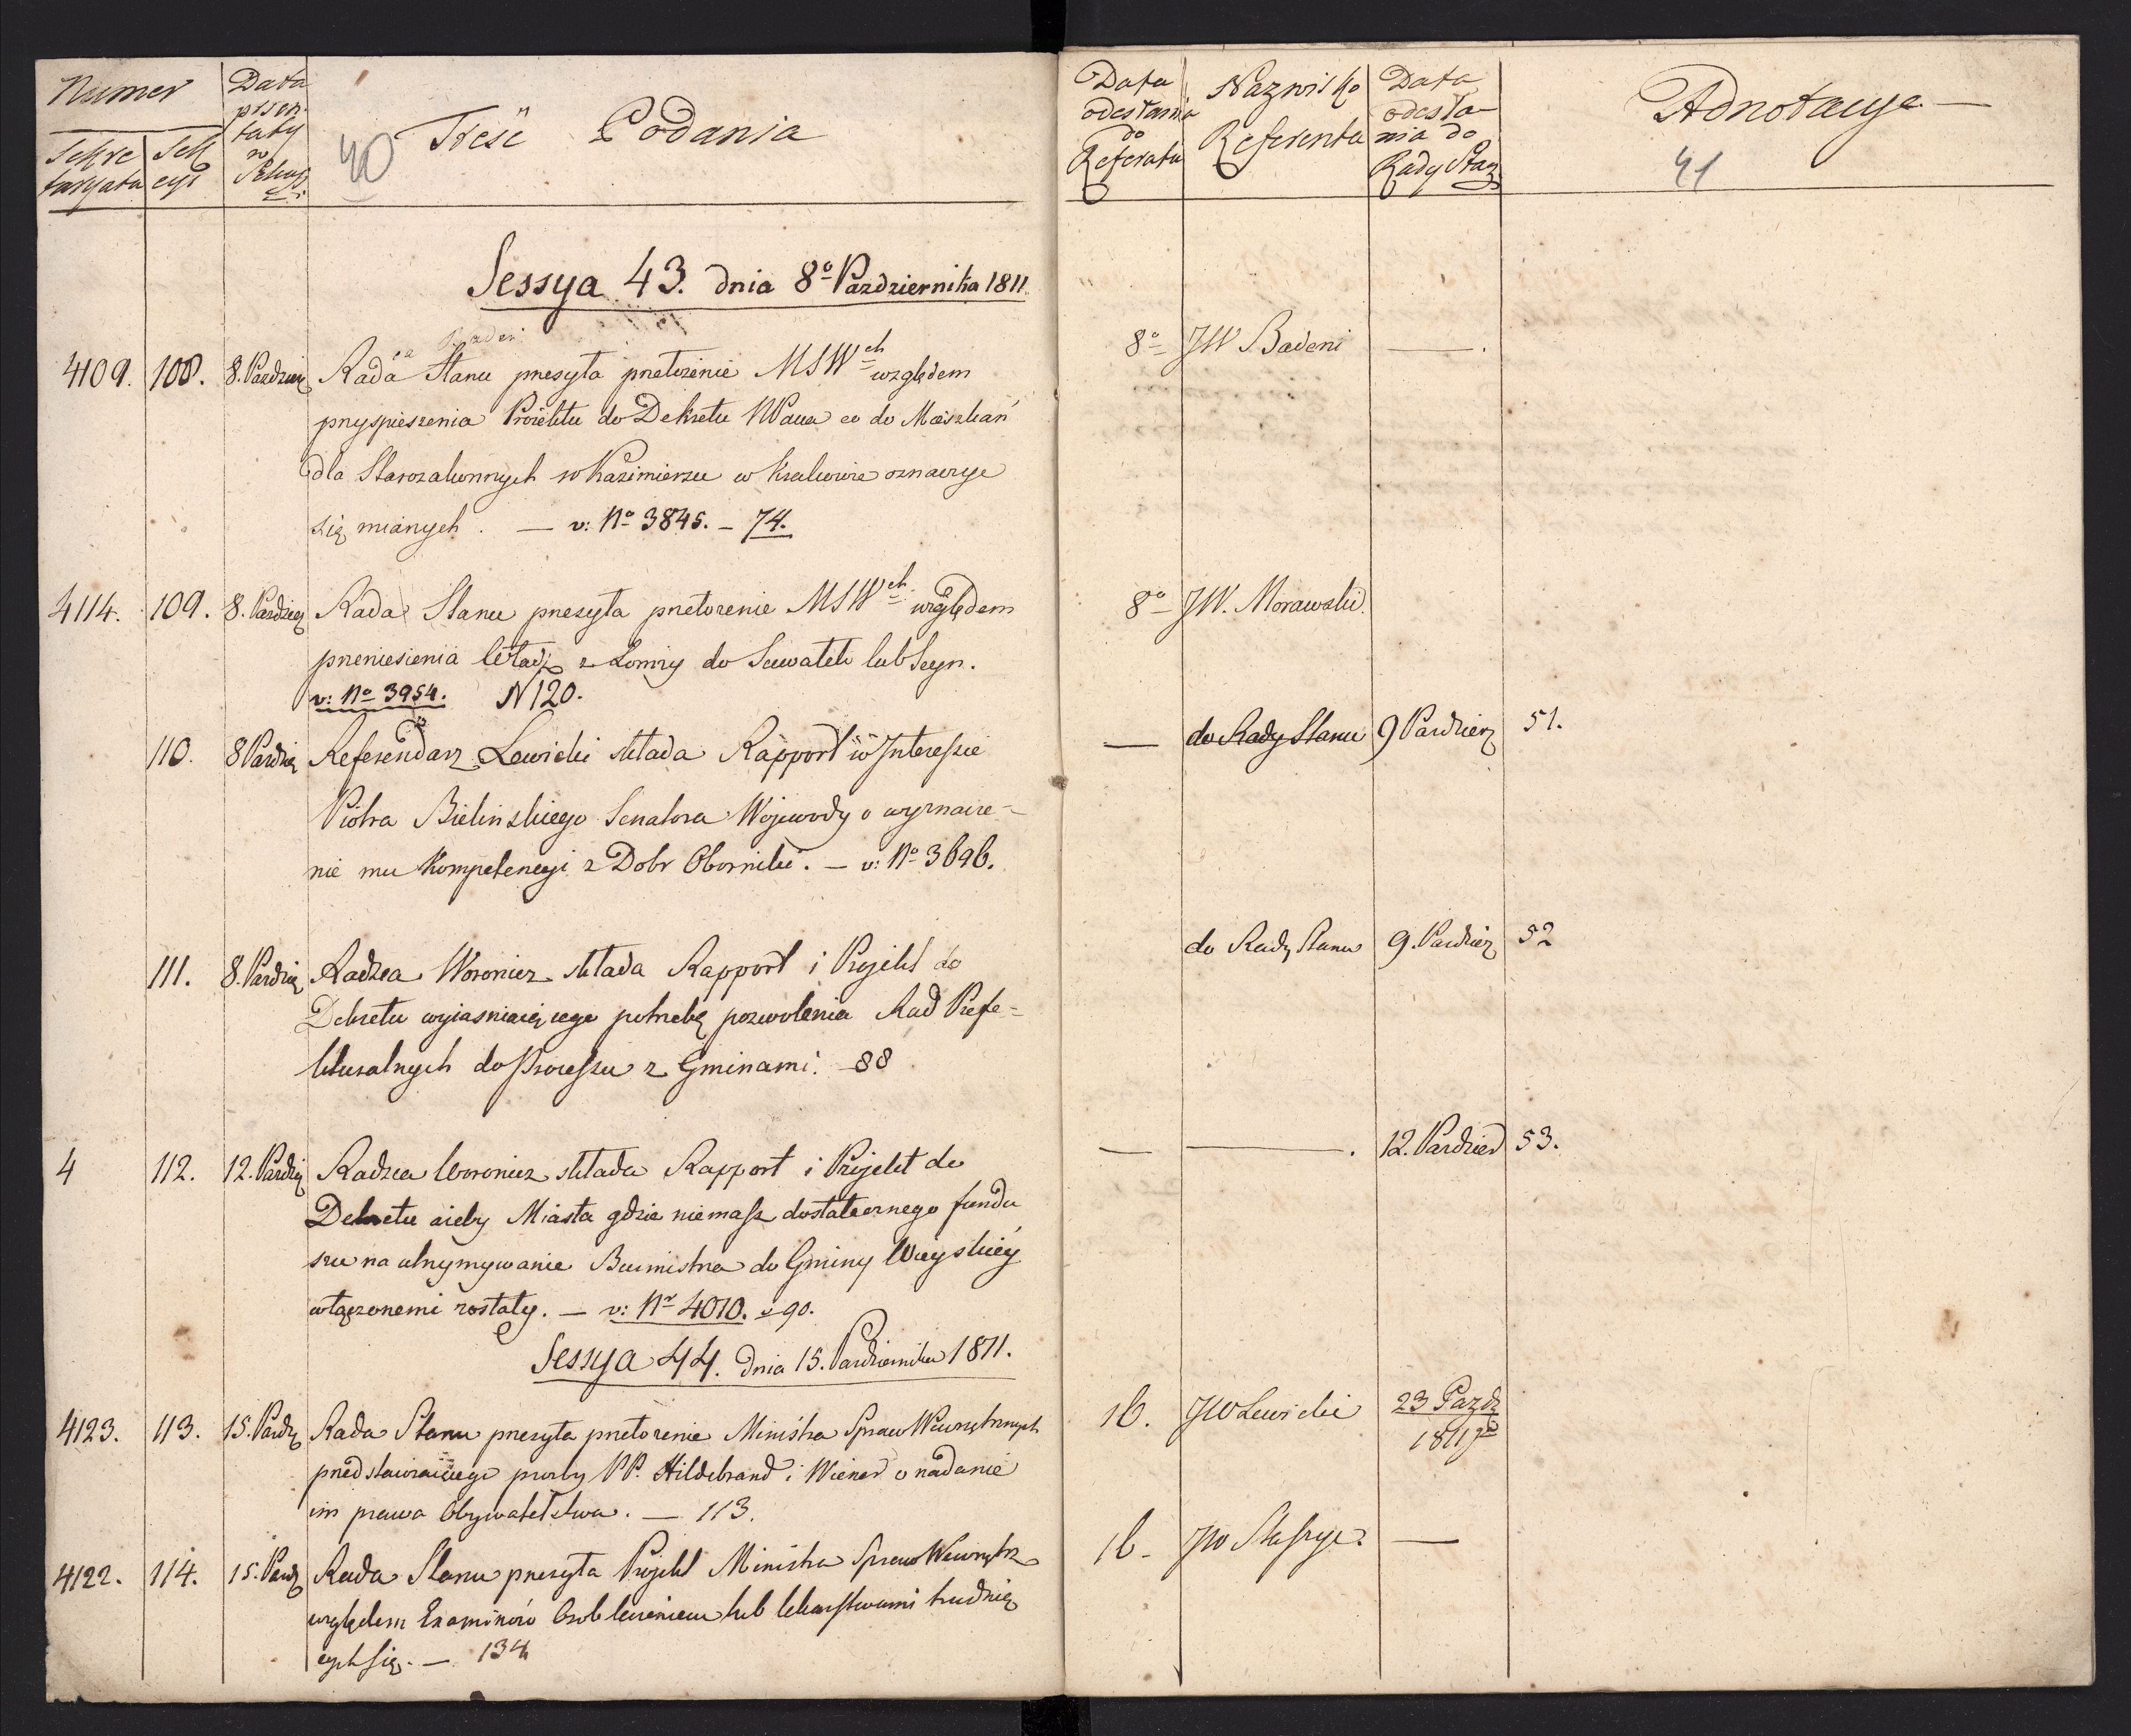 Numer
Sekre
taryatu
Sek
cyi
Data
prsen
taty
w
Sekcyi
40
Treść Podania
Sessya 43. dnia 8º Pazdziernika 1811
4109. 108. 8. Pazdzier Rada Stanu przesyła przełożenie MSWch względem
przyspieszenia Proiektu do Dekretu NPana co do Mieszkań
dla Starozakonnych w Kazimierzu w Krakowie oznaczyć
się mianych. — v: Nº 3845. — 74.
4114. 109. 8. Pazdzier Rada Stanu przesyła przełożenie MSWch względem
przeniesienia z Łomży do Suwałek lub Seyn.
v: Nº 3954. N 120.
110. 8 Pazdzier Referendarz Lewicki składa Rapport w Interessie
Piotra Bielinskiego Senatora Wojewody o wyznacze-
nie mu Kompetencyi z Dobr Oborniki. — v: Nº 3696.
111. 8. Pazdzier Radzca Woronicz składa Rapport i Projekt do
Dekretu wyiasniaiącego potrzebę pozwolenia Rad Prefe=
kturalnych do Processu z Gminami. 88
4 112. 12. Pazdzier Radzca Woronicz składa Rapport i Projekt do
Dekretu ażeby Miasta gdzie niemasz dostatecznego fundu
szu na utrzymywanie Burmistrza do Gminy Wieyskiéy
włączonemi zostały. — v: Nr 4010. — 90.
Sessya 44. dnia 15. Pazdziernika 1811.
4123. 113. 15. Pazdz Rada Stanu przesyła przełożenie Ministra Spraw Wewnętrznych
przedstawiaiącego prozby PP. Hildebrand i Wiener o nadanie
im prawa Obywatelstwa. — 113.
4122. 114. 15. Pazdz Rada Stanu przesyła Projekt Ministra Spraw Wewnętrz
względem Examinów Osob leczeniem lub lekarstwami trudnią
cych się. — 134
Data
odesłania
do
Referatu
Nazwisko
Referenta
Data
odesła-
nia do
Rady Stanu
Adnotacye
41
8º JW Badeni — .
8º JW. Morawski.
— do Rady Stanu 9 Pazdzier 51.
do Rady Stanu 9. Pazdzier 52
— — . 12. Pazdzier 53.
16. JW Lewicki 23 Pazdz
1811
16. JW Staszyc —